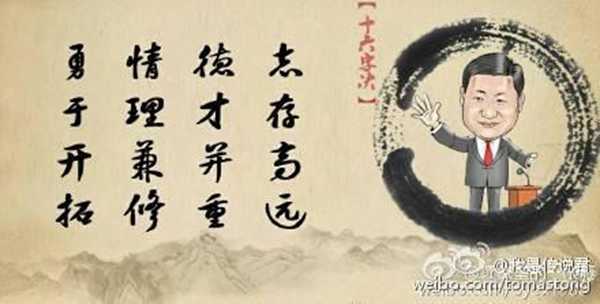 【十六字决】
志存高远
德才并重
情理兼修
勇于开拓
@我是传说君
weibo.com/tomastong